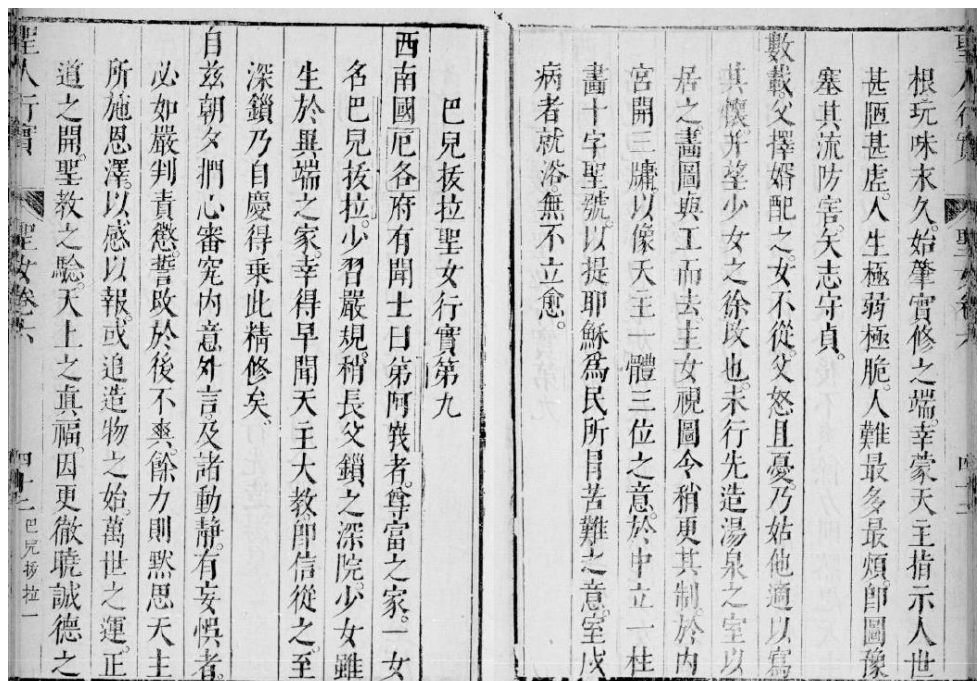 聖人行實 聖女卷六 四十二
根玩味未久。始肇實修之端。幸蒙天主指示人世
甚陋甚虛。人生極弱極脆。人難最多最煩。卽圖豫
塞其流防害。矢志守貞。
數載父擇婿配之。女不從。父怒且憂。乃姑他適以寫
其懷。并望少女之徐改也。未行先造湯泉之室以
居之。畫圖與工而去。主女視圖令稍更其制。於内
宮開三牖。以像天主一體三位之意。於中立一柱
畫十字聖號。以提耶穌爲民所冐苦難之意。室成
病者就浴。無不立愈。
巴兒拔拉聖女行實第九
西南國厄各府有聞士曰弟阿義者。尊富之家。一女
名巴兒拔拉。少習嚴規。稍長父鎖之深院。少女雖
生於異端之家。幸得早聞天主大教。卽信從之。至
深鎖乃自慶得乘此精修矣。
自兹朝夕捫心審究内意外言。及諸動靜。有妄悞者。
必如嚴判責懲。誓改於後不爽。餘力則默思天主
所施恩澤。以感以報。或追造物之始。萬世之運。正
道之開。聖教之驗。天上之真福。因更徹曉誠德之
聖人行實 聖女卷六 四十二 巴兒拔拉一